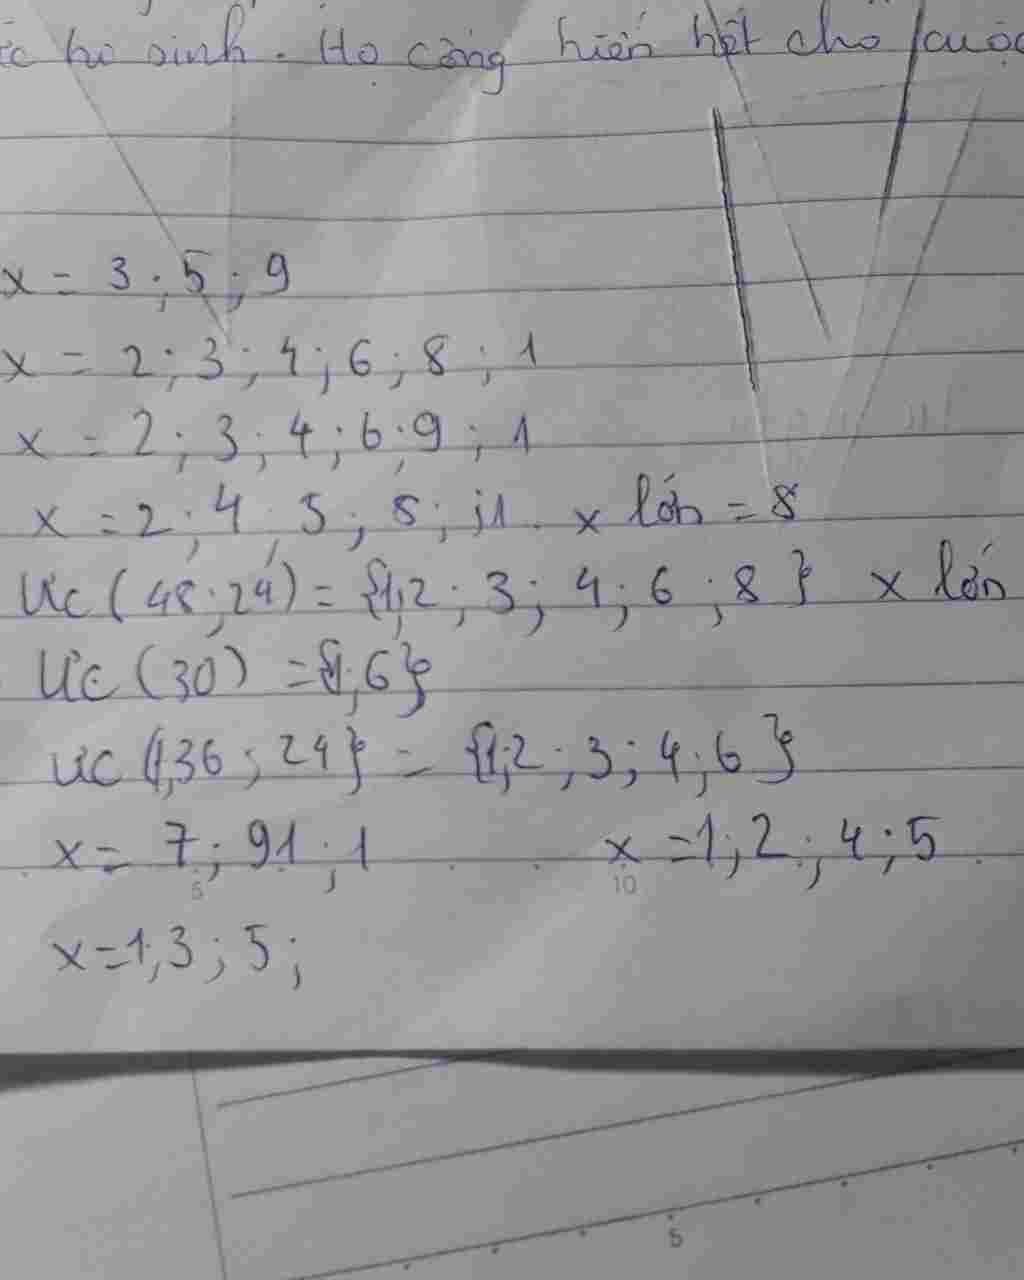 hi sinh. Họ cống hiến hết cho cuộc
x = 3 ; 5 ; 9
x = 2 ; 3 ; 4 ; 6 ; 8 ; 1
x = 2 ; 3 ; 4 ; 6 ; 9 ; 1
x = 2 ; 4 ; 5 ; 8 ; 1 . x lớn = 8
ƯC ( 48 ; 24 ) = {1,2 ; 3 ; 4 ; 6 ; 8 } x lớn
ƯC (30) = {1;6}
ƯC (1,36 ; 24} = {1;2 ; 3 ; 4 ; 6 }
x = 7 ; 91 ; 1 x =1 ; 2 ; 4 ; 5
5 10
x=1,3 ; 5 ;
5